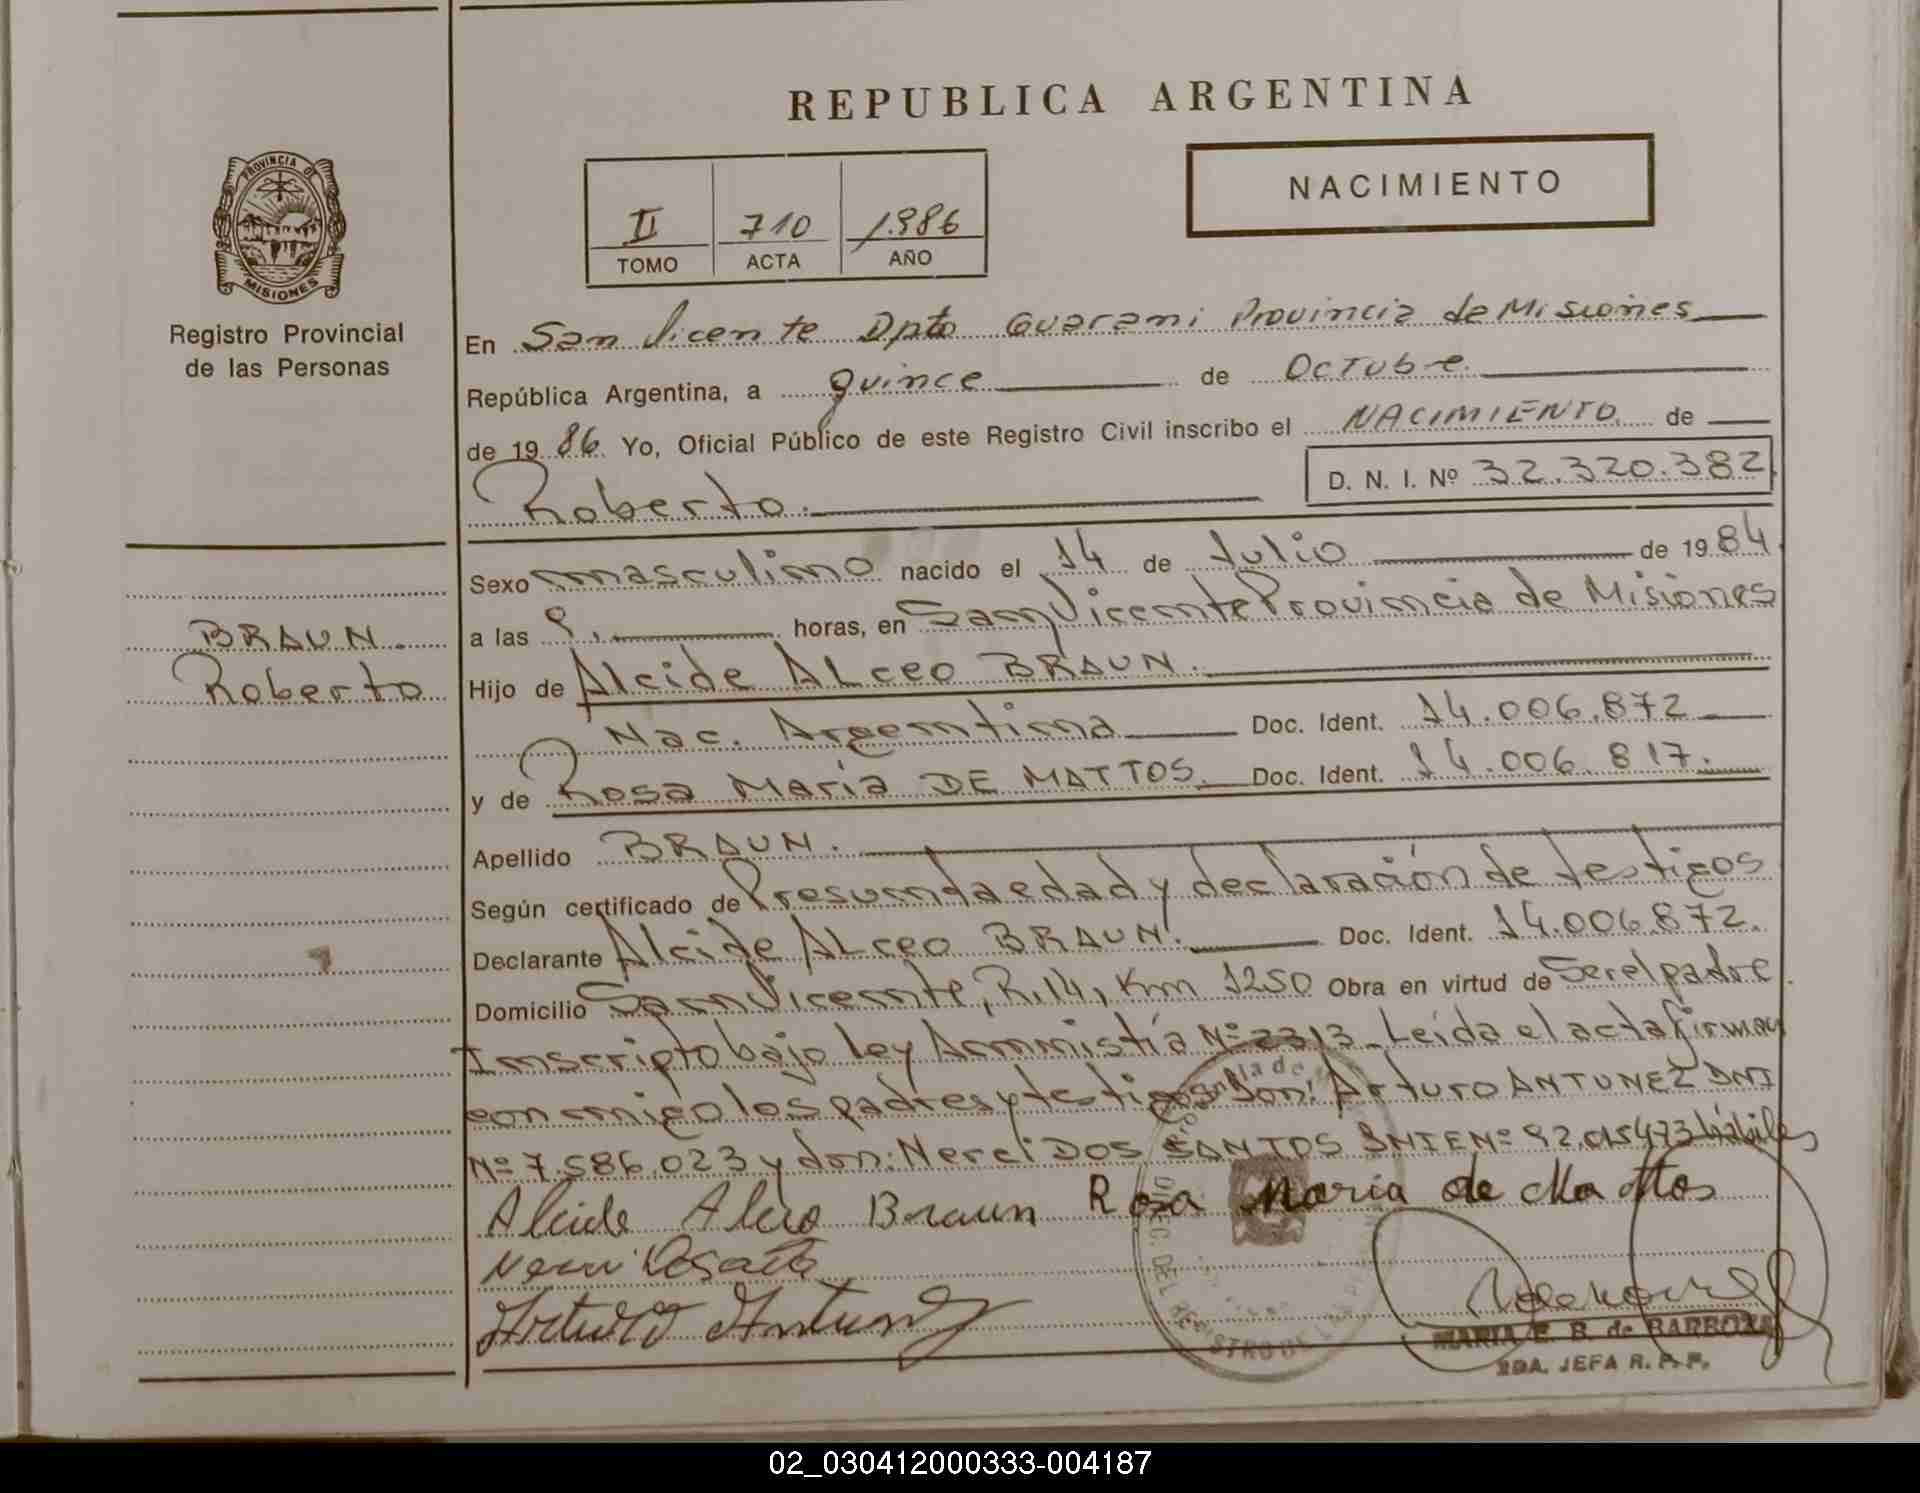 REPUBLICA ARGENTINA
PROVINCIA DE
MISIONES
Registro Provincial
de las Personas
II 710 1986
TOMO ACTA AÑO
NACIMIENTO
En San Vicente Dpto Guarani Provincia de Misiones
República Argentina, a quince de Octubre
de 19 86 Yo, Oficial Público de este Registro Civil inscribo el NACIMIENTO de
Roberto.
D. N. I. Nº 32.320.382
Sexo masculino nacido el 14 de Julio de 19 84
a las 9. horas, en San Vicente Provincia de Misiones
BRAUN.
Roberto
Hijo de Alcide ALceo BRAUN.
Nac. Argentina Doc. Ident. 14.006.872
y de Rosa María DE MATTOS Doc. Ident. 14.006.817.
Apellido BRAUN.
Según certificado de Presunta edad y declaración de testigos
Declarante Alcide ALceo BRAUN. Doc. Ident. 14.006.872.
Domicilio San Vicente, R.14, Km 1250 Obra en virtud de Ser el padre
Inscripto bajo ley Amnistía Nº 2313 - Leída el acta firman
conmigo los padres y testigos Don: Arturo ANTUNEZ DNI
Nº 7.586.023 y don: Nerei DOS SANTOS DNIE Nº 92.015473 hábiles
Alcide Alceo Braun Rosa Maria de Mattos
Arturo Antunez
DIREC. DEL REGISTRO DE
MARIA E. B. de BARBOZA
2DA. JEFA R. P. P.
02_030412000333-004187